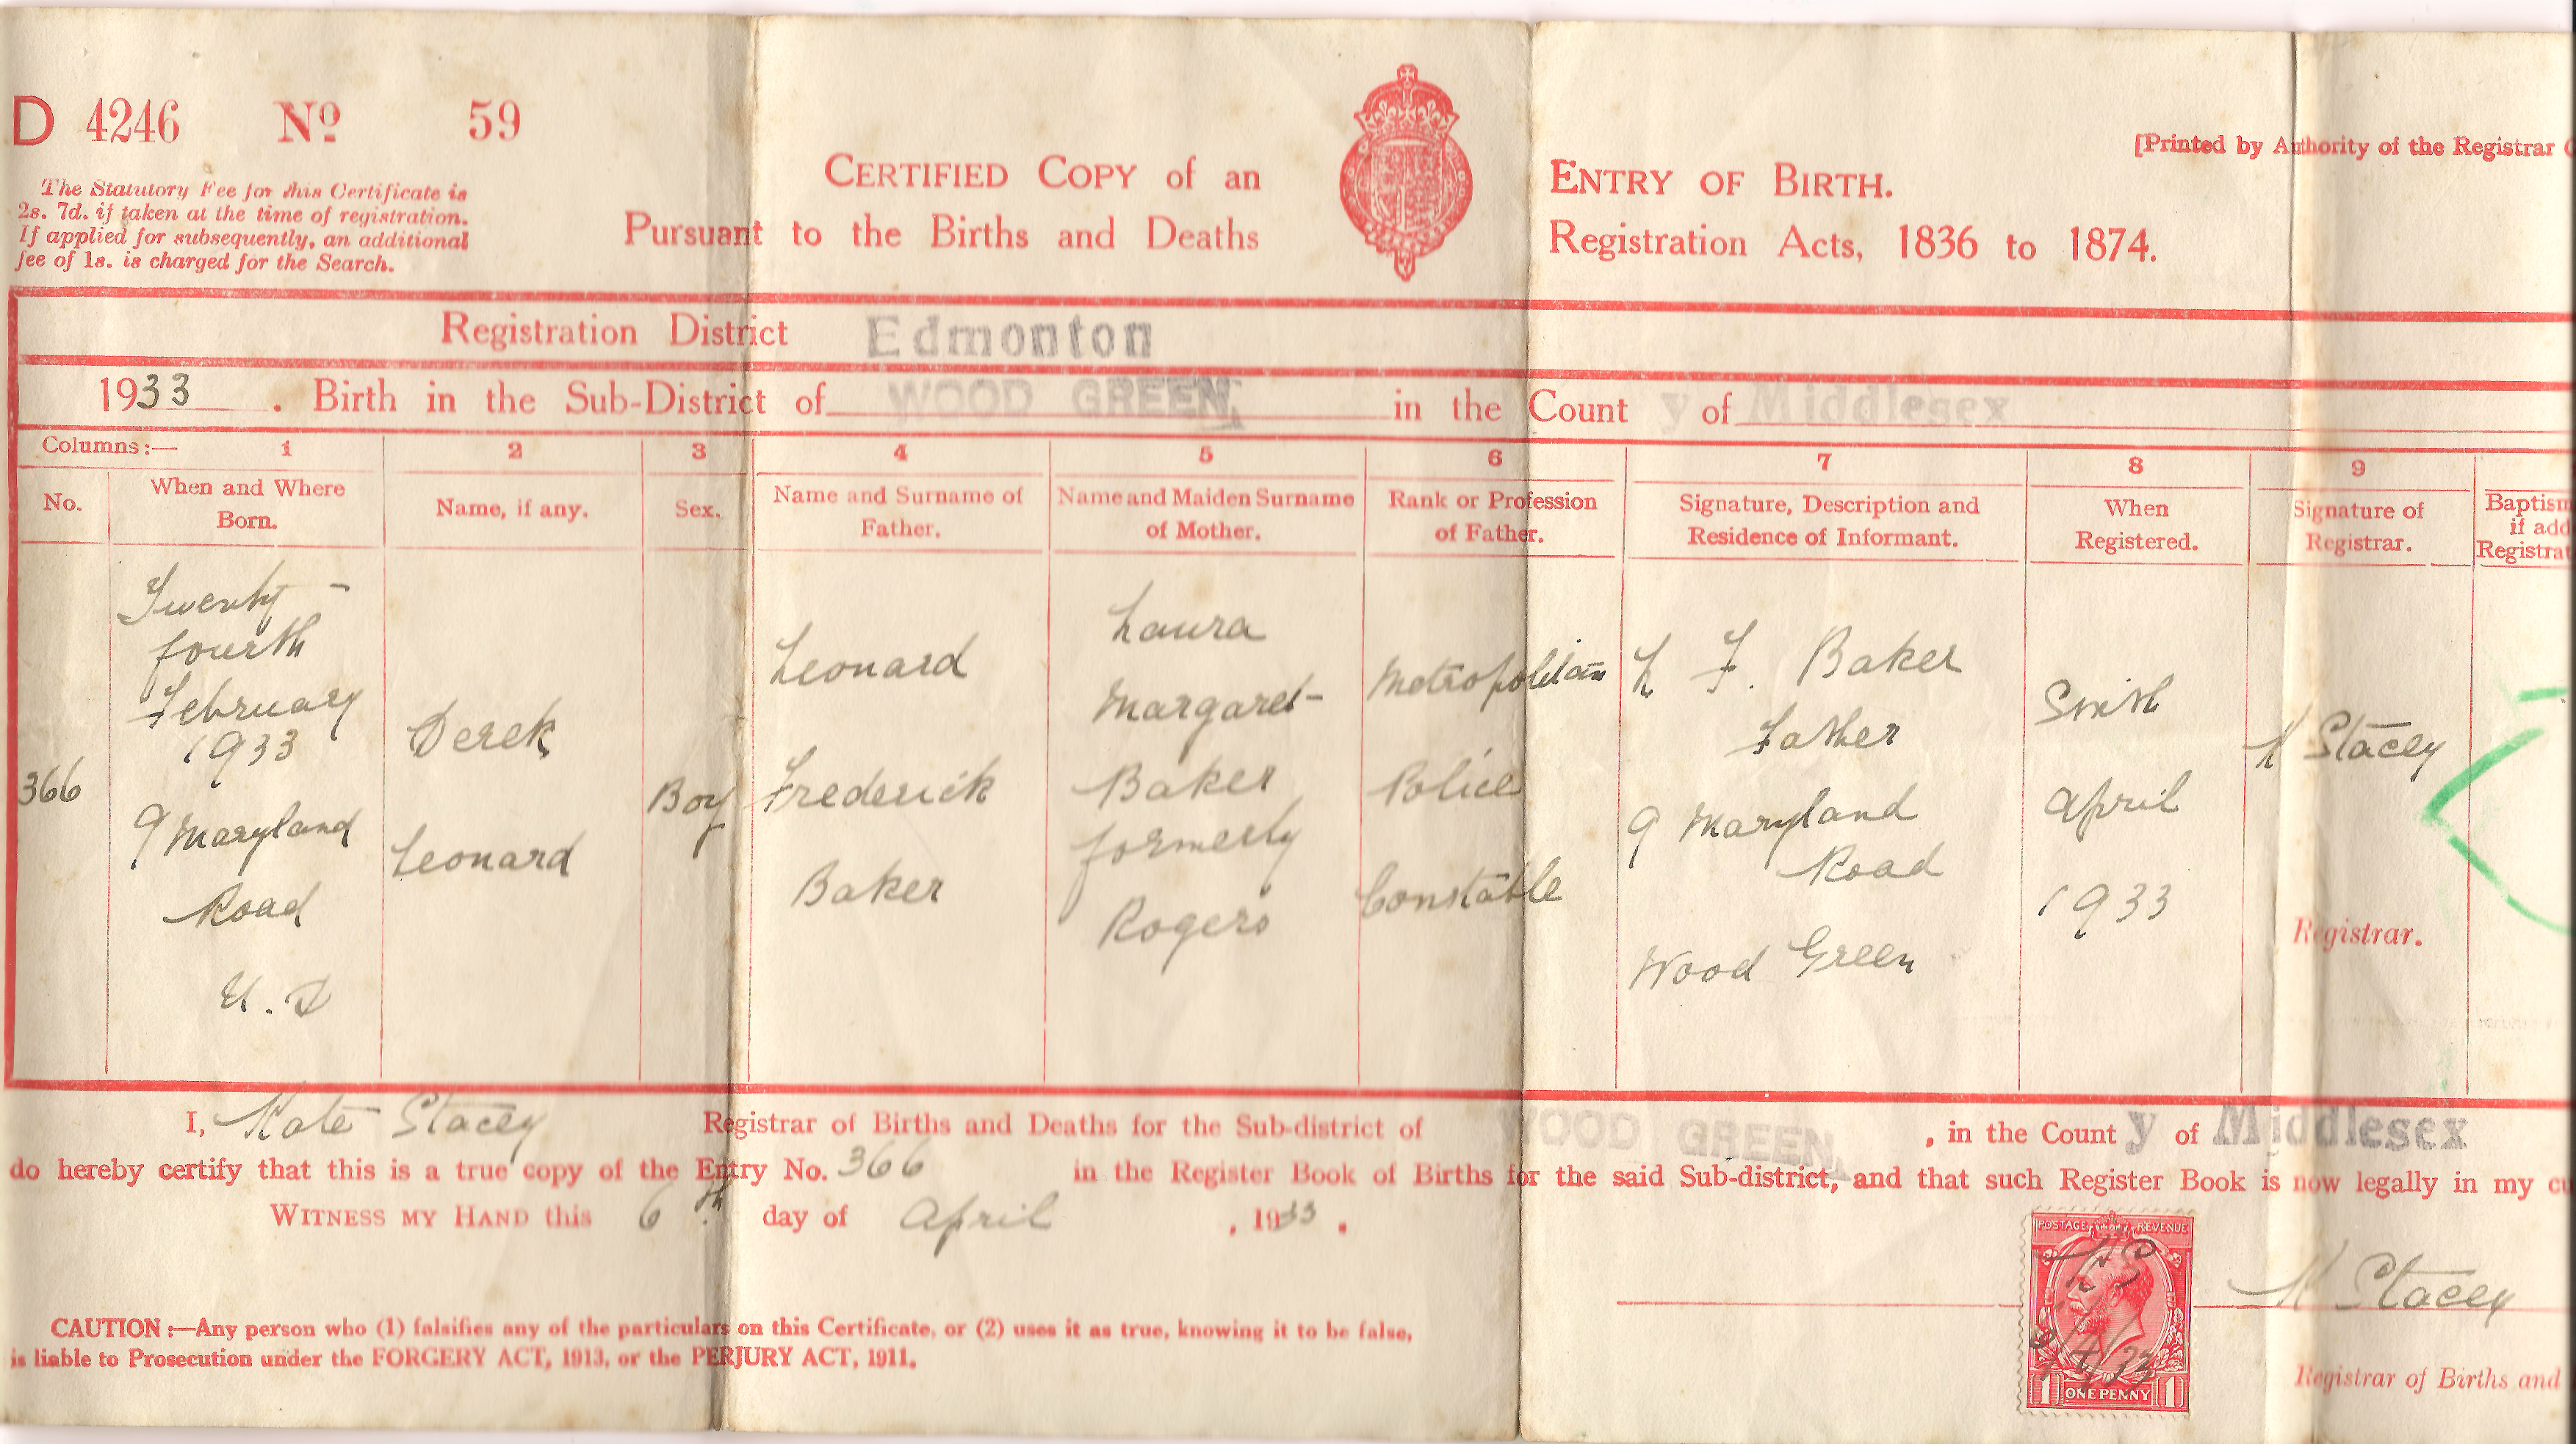 D 4246 Nº 59
[Printed by Authority of the Registrar
The Statutory Fee for this Certificate is
2s. 7d. if taken at the time of registration.
If applied for subsequently, an additional
fee of 1s. is charged for the Search.
CERTIFIED COPY of an ENTRY OF BIRTH.
Pursuant to the Births and Deaths Registration Acts, 1836 to 1874.
Registration District Edmonton
1933. Birth in the Sub-District of WOOD GREEN, in the County of Middlesex
Columns:— 1 2 3 4 5 6 7 8 9
No.
When and Where
Born.
Name, if any.
Sex.
Name and Surname of
Father.
Name and Maiden Surname
of Mother.
Rank or Profession
of Father.
Signature, Description and
Residence of Informant.
When
Registered.
Signature of
Registrar.
Baptism
if add
Registrat
366
Twenty-
fourth
February
1933
9 Maryland
Road
U. D
Derek
Leonard
Boy
Leonard
Frederick
Baker
Laura
Margaret
Baker
formerly
Rogers
Metropolitan
Police
Constable
L F. Baker
Father
9 Maryland
Road
Wood Green
Sixth
April
1933
K Stacey
Registrar.
I, Kate Stacey Registrar of Births and Deaths for the Sub-district of WOOD GREEN, , in the County of Middlesex
do hereby certify that this is a true copy of the Entry No. 366 in the Register Book of Births for the said Sub-district, and that such Register Book is now legally in my
WITNESS MY HAND this 6th day of April , 1933.
POSTAGE REVENUE
KS
/4/33
1 ONE PENNY 1
K Stacey
Registrar of Births and
CAUTION:—Any person who (1) falsifies any of the particulars on this Certificate, or (2) uses it as true, knowing it to be false,
is liable to Prosecution under the FORGERY ACT, 1913, or the PERJURY ACT, 1911.